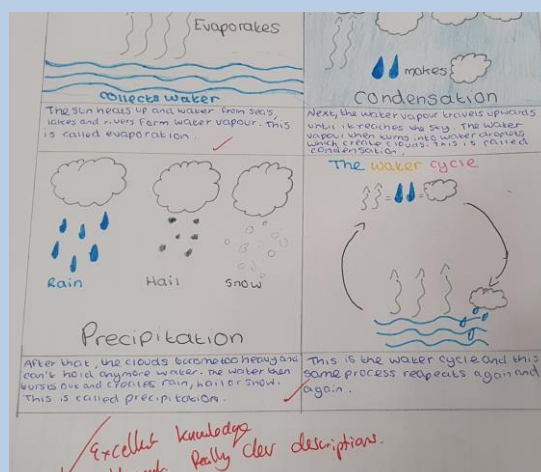 Evaporates
collects water
The sun heats up and water from sea's,
lakes and rivers form water vapour. This
is called evaporation.
makes
condensation
Next, the water vapour travels upwards
until it reaches the sky. The water
vapour then turns into water droplets
which create clouds. This is called
condensation.
Rain
Hail
Snow
Precipitation
After that, the clouds become too heavy and
can't hold anymore water. The water then
bursts out and creates rain, hail or snow.
This is called precipitation.
The water cycle
= =
This is the water cycle and this
same process reapeats again and
again.
Excellent knowledge
Really clear descriptions.